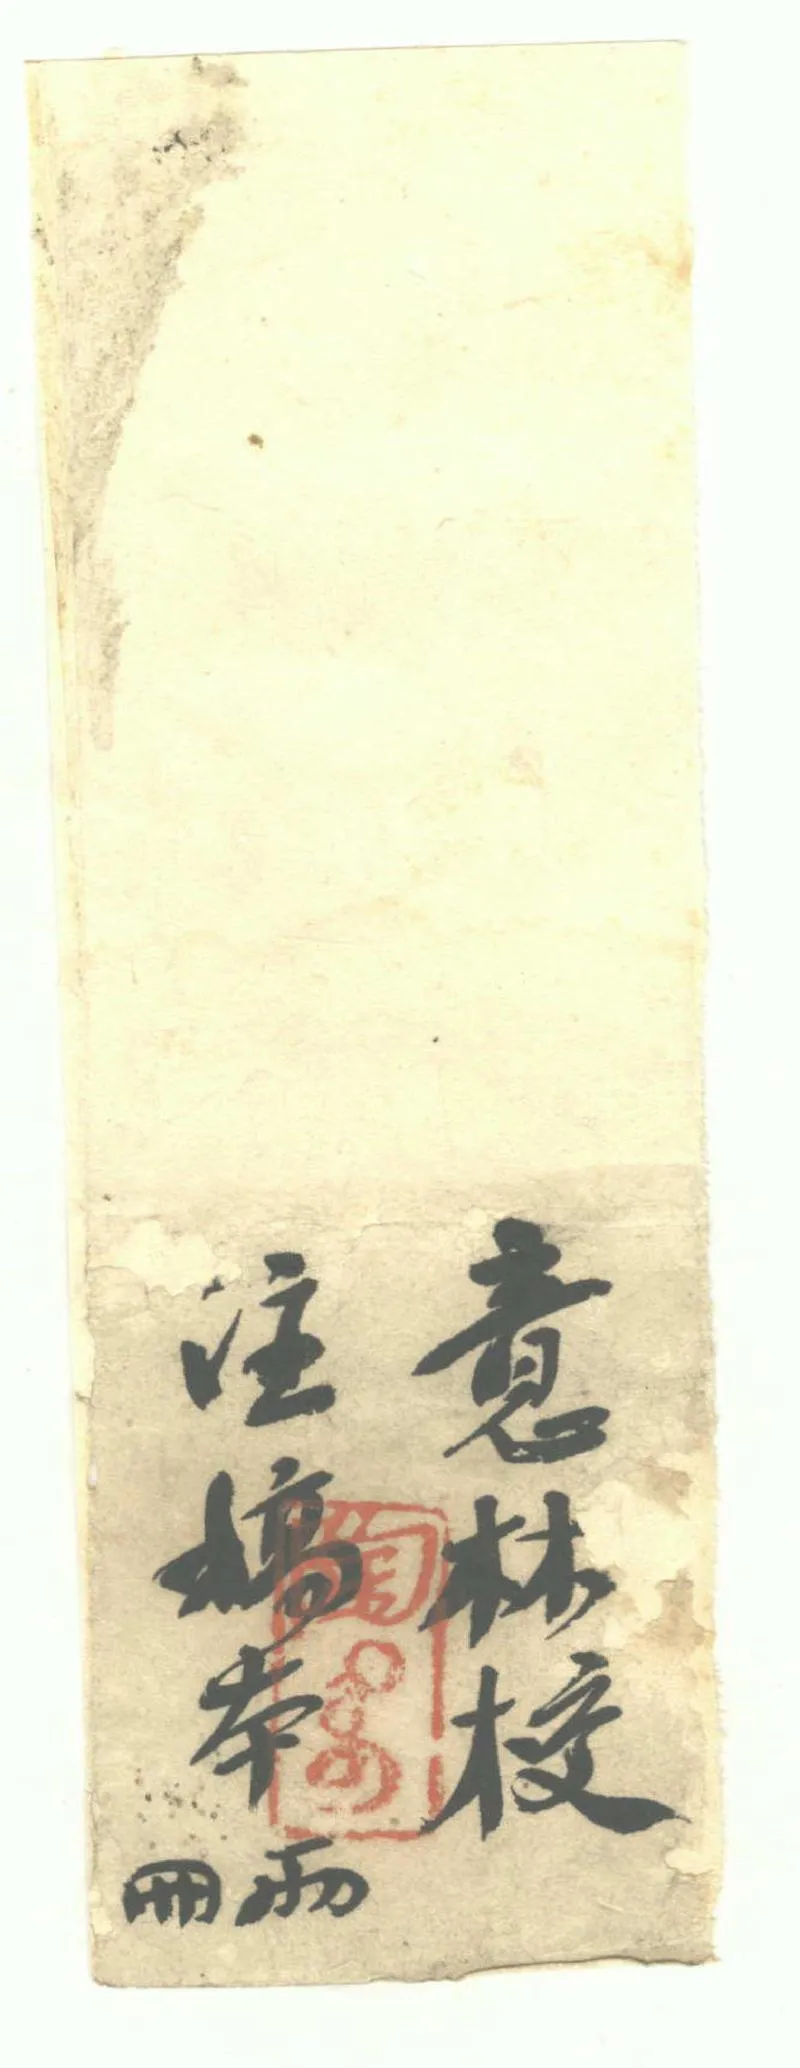 意林校
注稿本
兩冊